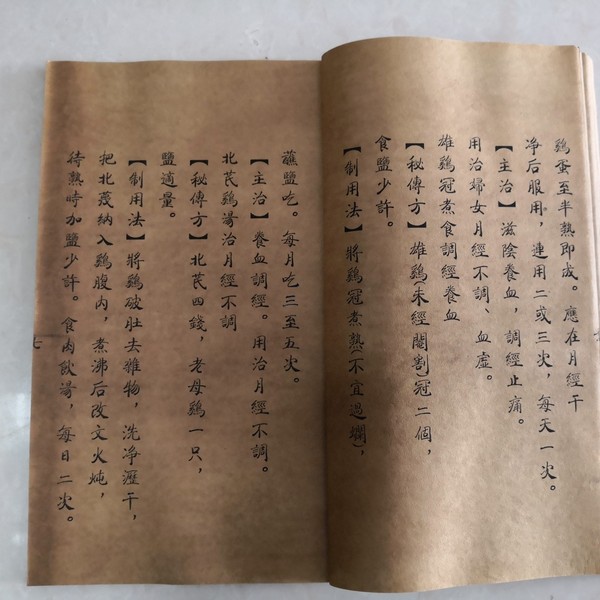 鷄蛋至半熟即成。應在月經干
净后服用，連用二或三次，每天一次。
【主治】滋陰養血，調經止痛。
用治婦女月經不調、血虛。
雄鷄冠煮食調經養血
【秘傳方】雄鷄(未經閹割)冠二個，
食鹽少許。
【制用法】將鷄冠煮熟(不宜過爛)，
蘸鹽吃。每月吃三至五次。
【主治】養血調經。用治月經不調。
北芪鷄湯治月經不調
【秘傳方】北芪四錢，老母鷄一只，
鹽適量。
【制用法】將鷄破肚去雜物，洗净瀝干，
把北芪納入鷄腹内，煮沸后改文火炖，
待熟時加鹽少許。食肉飲湯，每日二次。
七